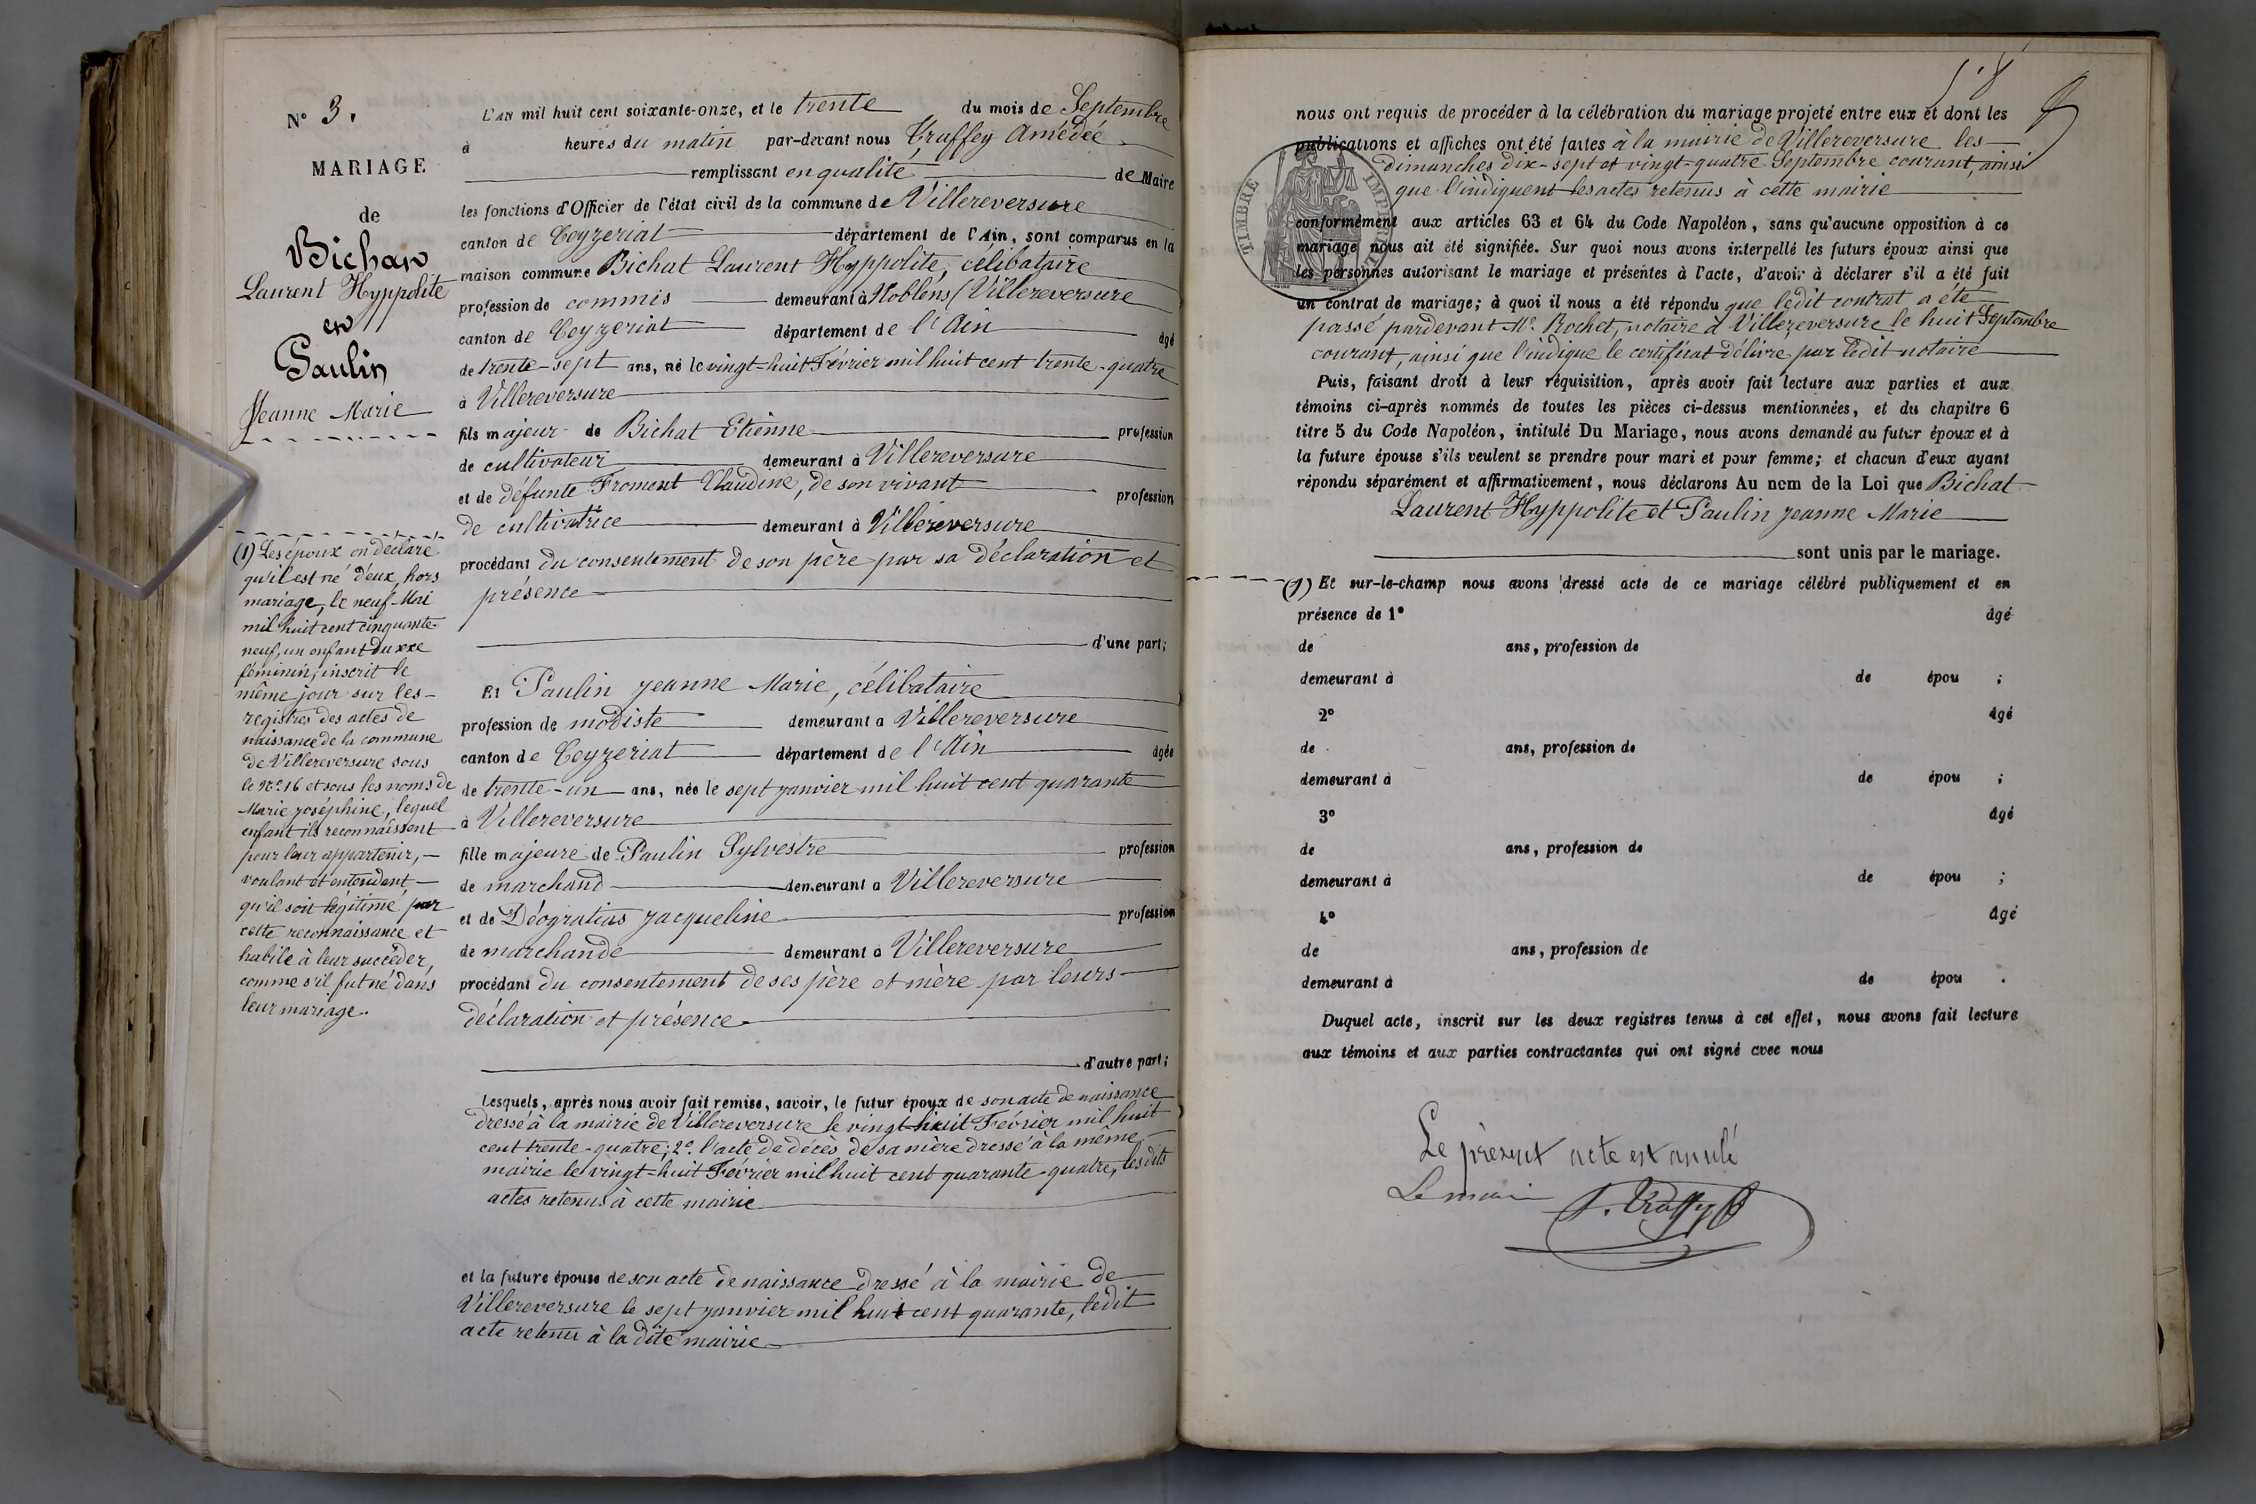 N° 3.
MARIAGE
de
Bichat
Laurent Hyppolite
et
Paulin
Jeanne Marie
(1) Les époux on déclaré
qu'il est né d'eux, hors
mariage, le neuf Mai
mil huit cent cinquante-
neuf, un enfant du sexe
féminin, inscrit le
même jour sur les
registres des actes de
naissance de la commune
de Villereversure sous
le N° 16 et sous les noms de
Marie Joséphine, lequel
enfant ils reconnaissent
pour leur appartenir,
voulant et entendant
qu'il soit légitimé par
cette reconnaissance et
habile à leur succéder,
comme s'il fut né dans
leur mariage.
L'AN mil huit cent soixante-onze, et le trente du mois de Septembre
à heures du matin par-devant nous Truffey Amédée
remplissant en qualité de Maire
les fonctions d'Officier de l'état civil de la commune de Villereversure
canton de Ceyzeriat département de l'Ain, sont comparus en la
maison commune Bichat Laurent Hyppolite, célibataire
profession de commis demeurant à Noblens (Villereversure
canton de Ceyzeriat département de l'Ain âgé
de trente-sept ans, né le vingt-huit Février mil huit cent trente-quatre
à Villereversure
fils majeur de Bichat Etienne profession
de cultivateur demeurant à Villereversure
et de défunte Froment Claudine, de son vivant profession
de cultivatrice demeurant à Villereversure
procédant du consentement de son père par sa déclaration et
présence
d'une part;
Et Paulin Jeanne Marie, célibataire
profession de modiste demeurant à Villereversure
canton de Ceyzeriat département de l'Ain âgée
de trente-un ans, née le sept janvier mil huit cent quarante
à Villereversure
fille majeure de Paulin Sylvestre profession
de marchand demeurant à Villereversure
et de Déogratias Jacqueline profession
de marchande demeurant à Villereversure
procédant du consentement de ses père et mère par leurs
déclaration et présence
d'autre part;
Lesquels, après nous avoir fait remise, savoir, le futur époux de son acte de naissance
dressé à la mairie de Villereversure le vingt-huit Février mil huit
cent trente-quatre; 2° l'acte de décès de sa mère dressé à la même
mairie le vingt-huit Février mil huit cent quarante-quatre, lesdits
actes retenus à cette mairie
et la future épouse de son acte de naissance dressé à la mairie de
Villereversure le sept janvier mil huit cent quarante, ledit
acte retenu à la dite mairie
nous ont requis de procéder à la célébration du mariage projeté entre eux et dont les
publications et affiches ont été faites à la mairie de Villereversure les
dimanches dix-sept et vingt-quatre Septembre courant, ainsi
que l'indiquent les actes retenus à cette mairie
TIMBRE IMPERIAL
conformément aux articles 63 et 64 du Code Napoléon, sans qu'aucune opposition à ce
mariage nous ait été signifiée. Sur quoi nous avons interpellé les futurs époux ainsi que
les personnes autorisant le mariage et présentes à l'acte, d'avoir à déclarer s'il a été fait
un contrat de mariage; à quoi il nous a été répondu que ledit contrat a été
passé pardevant Me Rochet, notaire à Villereversure le huit Septembre
courant, ainsi que l'indique le certificat délivré par ledit notaire
Puis, faisant droit à leur réquisition, après avoir fait lecture aux parties et aux
témoins ci-après nommés de toutes les pièces ci-dessus mentionnées, et du chapitre 6
titre 5 du Code Napoléon, intitulé Du Mariage, nous avons demandé au futur époux et à
la future épouse s'ils veulent se prendre pour mari et pour femme; et chacun d'eux ayant
répondu séparément et affirmativement, nous déclarons Au nom de la Loi que Bichat
Laurent Hyppolite et Paulin Jeanne Marie
sont unis par le mariage.
(1) Et sur-le-champ nous avons dressé acte de ce mariage célébré publiquement et en
présence de 1° âgé
de ans, profession de
demeurant à de épou ;
2° âgé
de ans, profession de
demeurant à de épou ;
3° âgé
de ans, profession de
demeurant à de épou ;
4° âgé
de ans, profession de
demeurant à de épou .
Duquel acte, inscrit sur les deux registres tenus à cet effet, nous avons fait lecture
aux témoins et aux parties contractantes qui ont signé avec nous
Le présent acte est annulé
Le maire